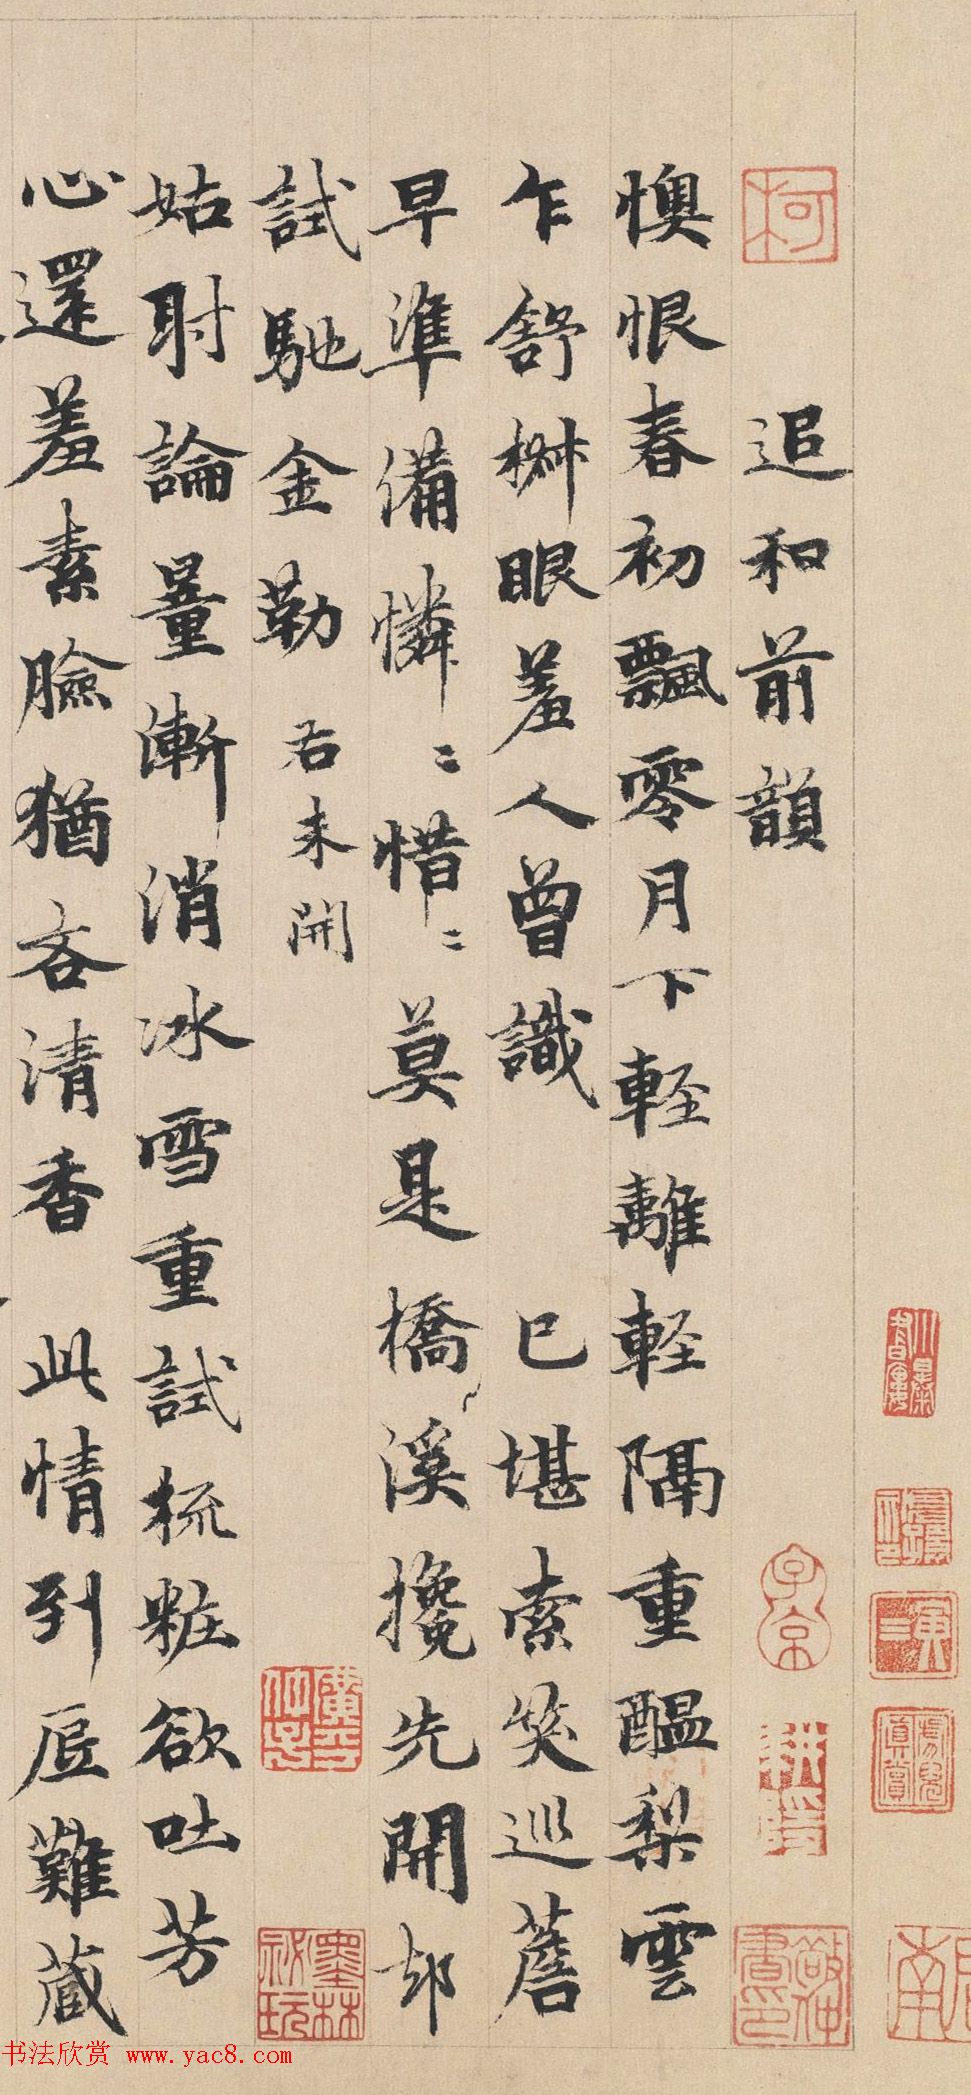 追和前韻
懊恨春初飄零月下輕離輕隔重醞梨雲
乍舒椒眼羞人曾識 已堪索笑巡簷
早準備憐〻惜〻莫是橋溪攙先開却
試馳金勒 右未開
姑射論量漸消冰雪重試梳粧欲吐芳
心還羞素臉猶吝清香 此情到底難藏
柯
子京
墨林祕玩
书法欣赏 www.yac8.com